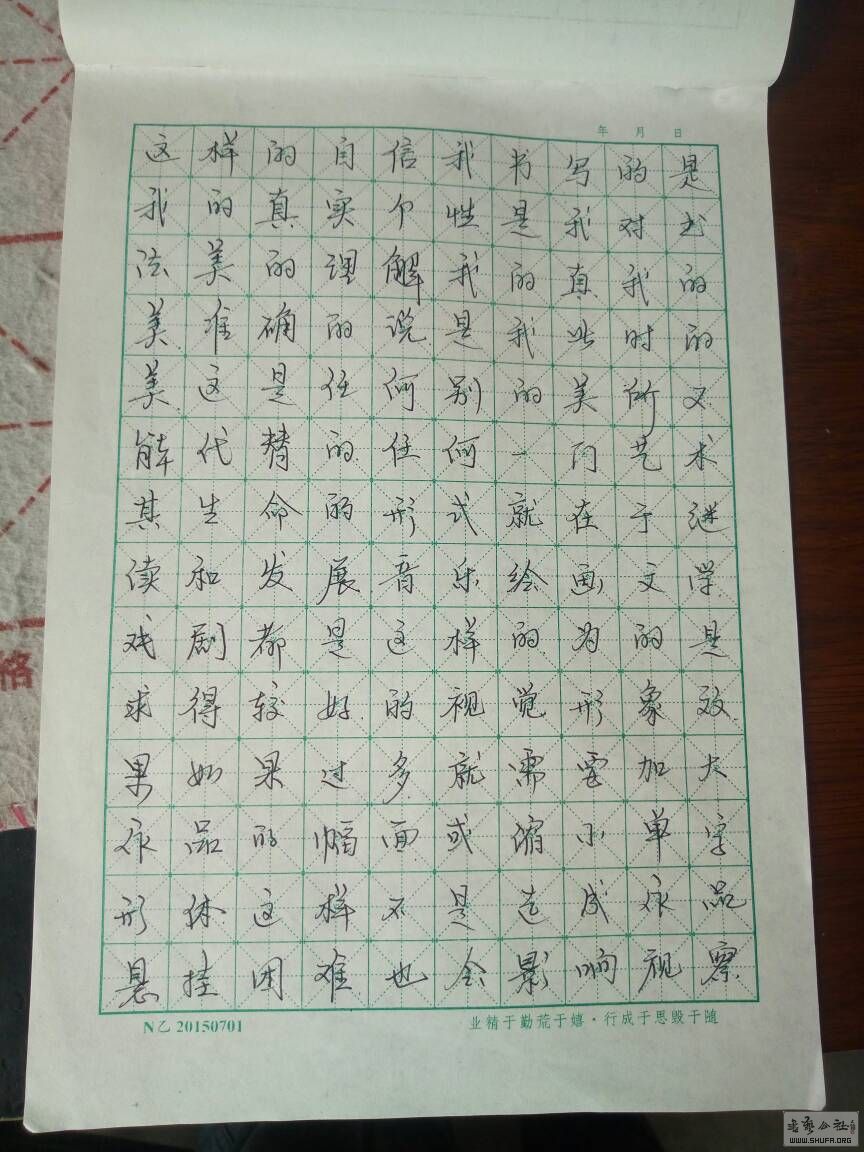 年 月 日
这样的自信我书写的是
我的真实个性是我对书
法美的理解我的真我的
美准确的说是我此时的
美这是任何别的美所不
能代替的任何一门艺术
其生命的形式就在于继
续和发展音乐绘画文学
戏剧都是这样的为的是
求得较好的视觉形象效
果如果过多就需要加大
作品的幅面或缩小单字
形体这样不是造成作品
悬挂困难也会影响视察
N乙 20150701 业精于勤荒于嬉·行成于思毁于随
格
书艺公社
WWW.SHUFA.ORG